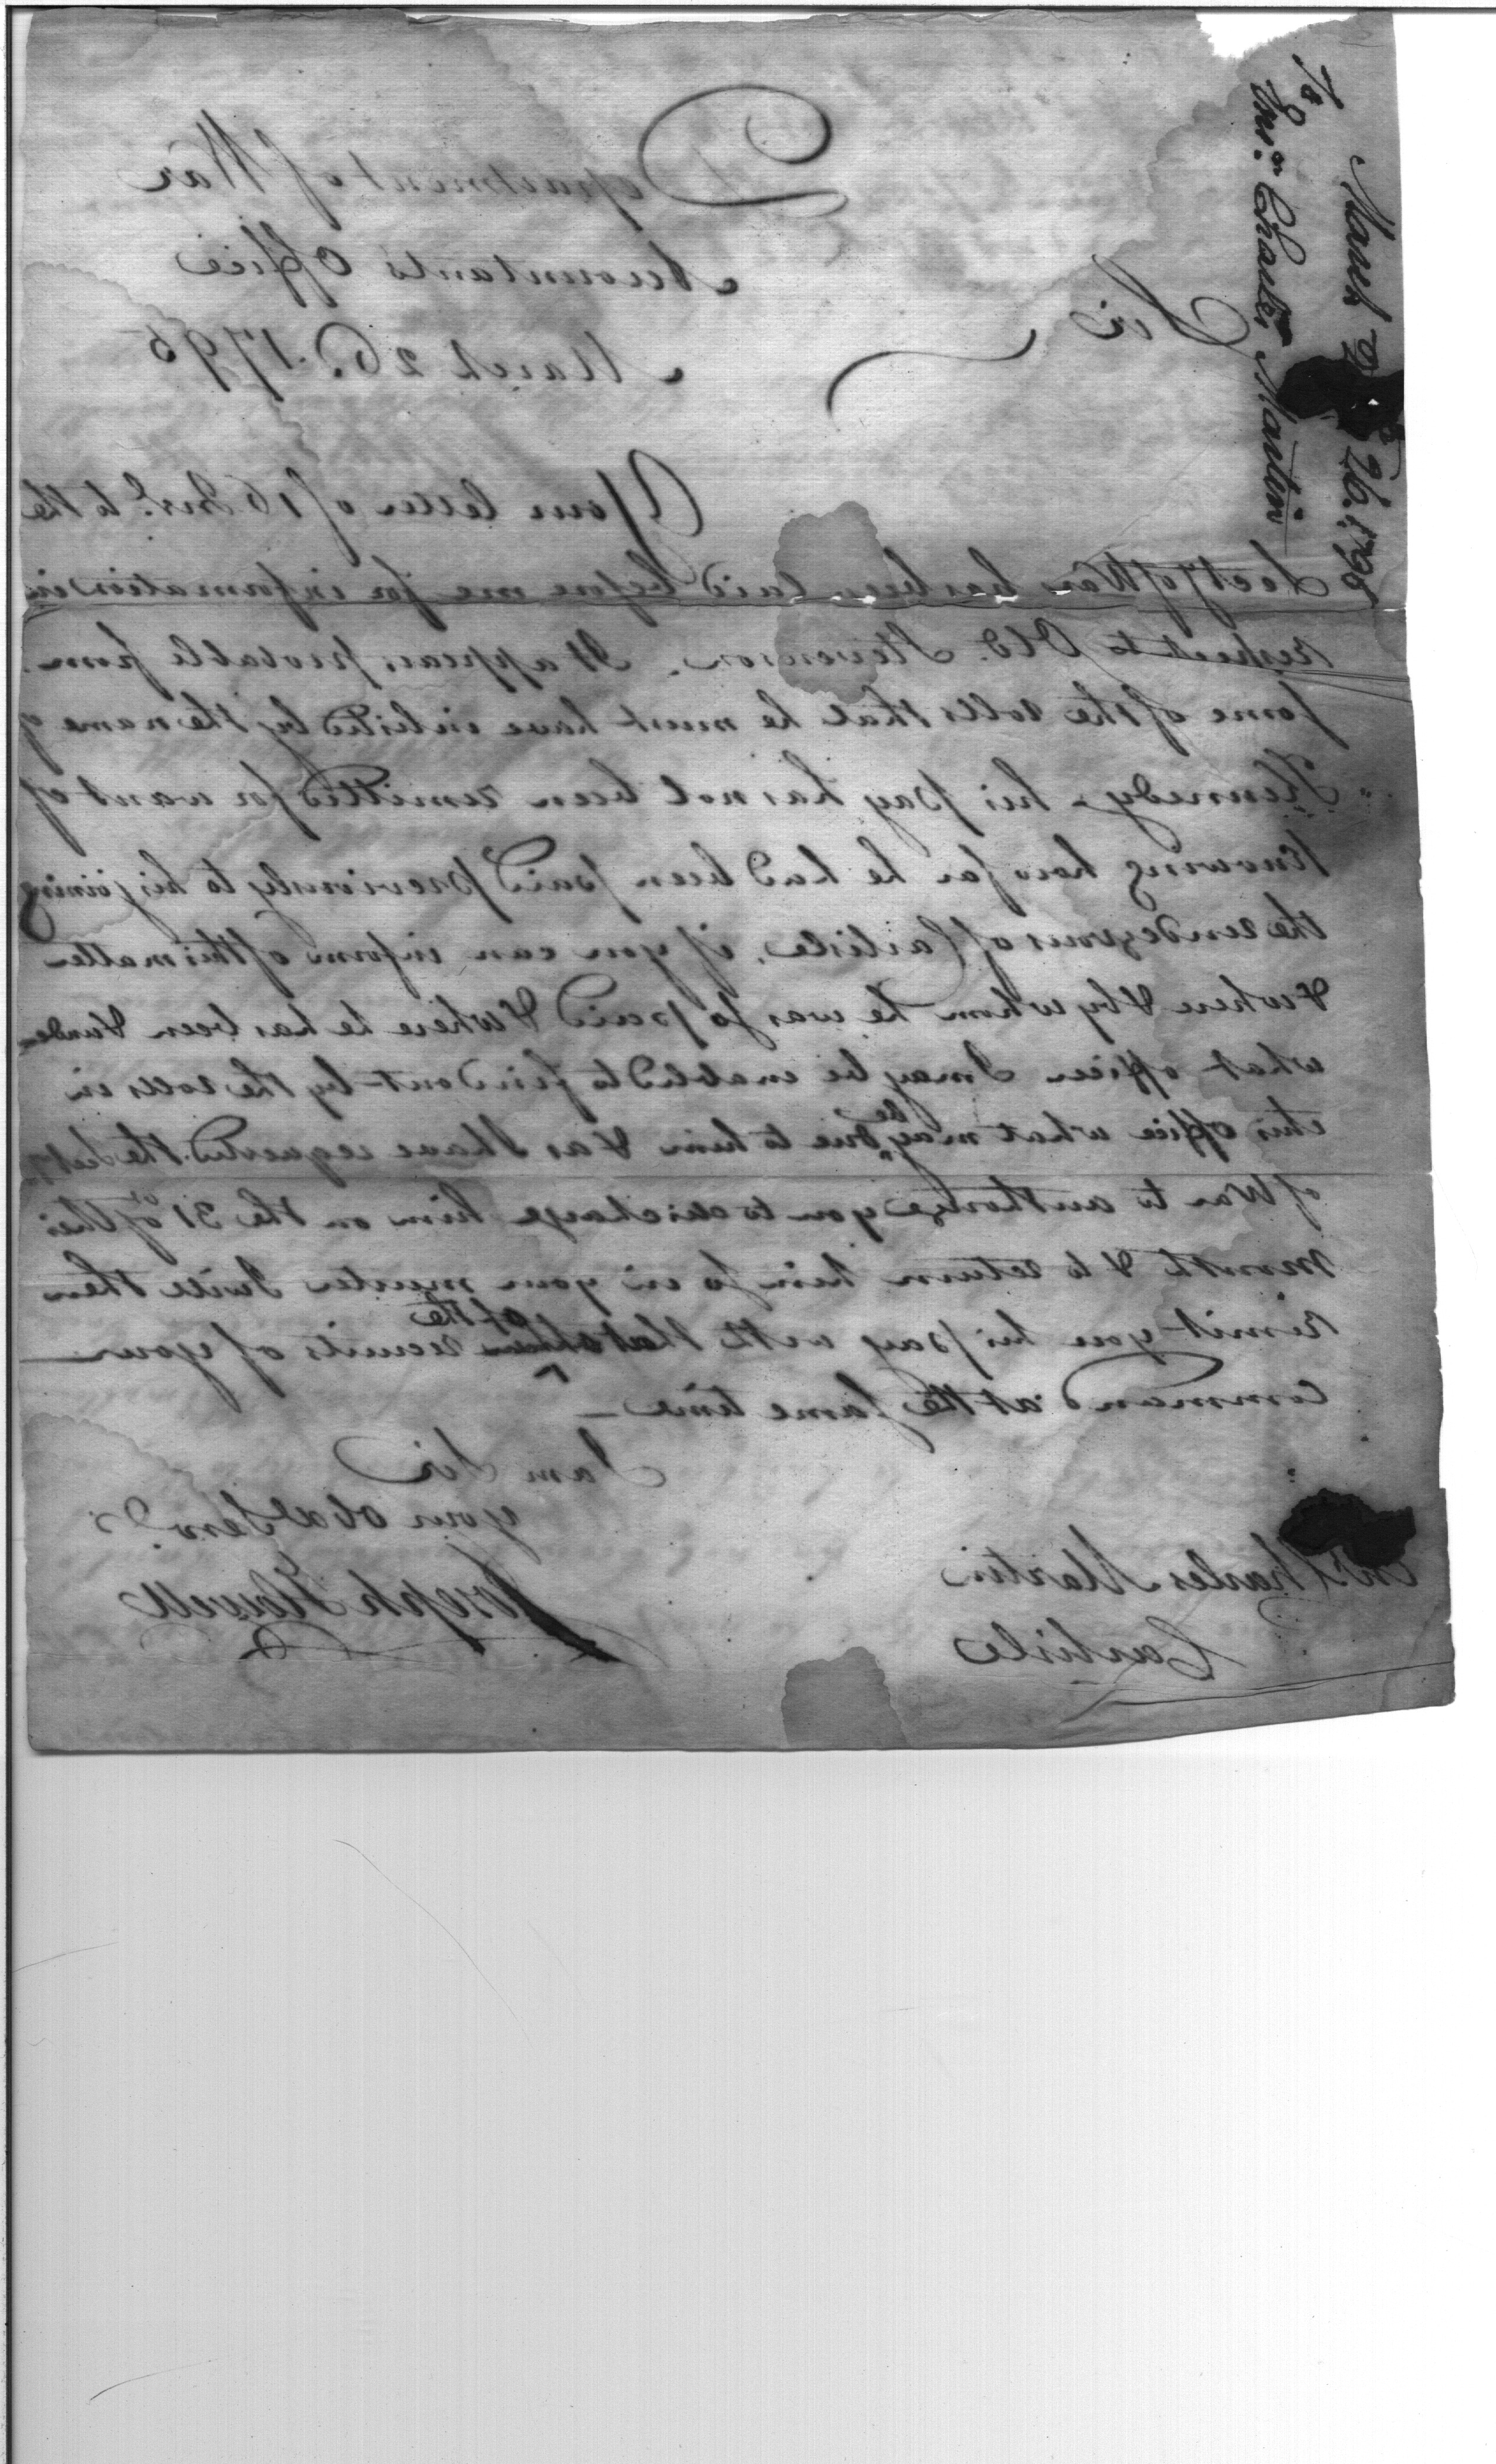 Department of War
Accountants Office
March 26. 1795
Sir
Your letter of 16 Inst. to the
Secty of War has been laid before me for information in
respect to Stevenson. It appears probable from
some of the rolls that he must have inlisted by the name of
Kennedy – his pay has not been remitted for want of
knowing how far he had been paid previously to his joining
the rendezvous of Carlisle, if you can inform of this matter
& where & by whom he was so paid & where he has been & under
what officer I may be enabled to find out by the rolls in
this office what may be due to him & as I have requested the Secty
of War to authorize you to discharge him on the 31st of this
month & to return him so in your muster I will then
remit you his pay with that of the other recruits of your
command at the same time –
I am Sir
your obed Servt
Joseph Howell
Ens. Charles Martin
Carlisle
March 26. 1795
To
Ens.n Charles Martin